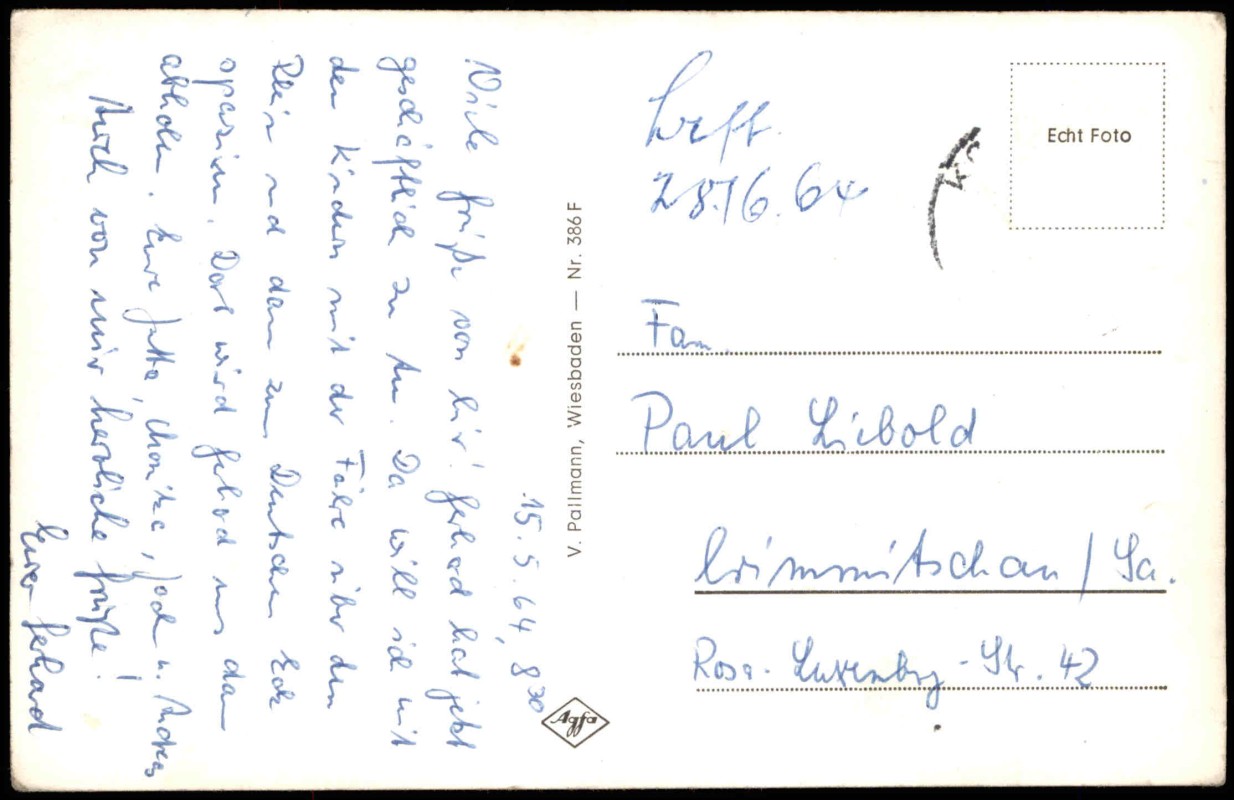 15.5.64, 8³⁰
Viele Grüße von hir! Gerhard hat jetzt
geschäftlich zu tun. Da will ich mit
den Kindern mit der Fähre über den
Rhein und dann zum Deutschen Eck
spazieren. Dort wird Gerhard uns dann
abholen. Eure Jutta, Monika, Joch u. Andreas
Auch von mir herzliche Grüße!
Euer Gerhard
V. Pallmann, Wiesbaden — Nr. 386 F
Agfa
Echt Foto
64
Fam.
Paul Liebold
Crimmitschau / Sa.
Rosa-Luxemburg-Str. 42